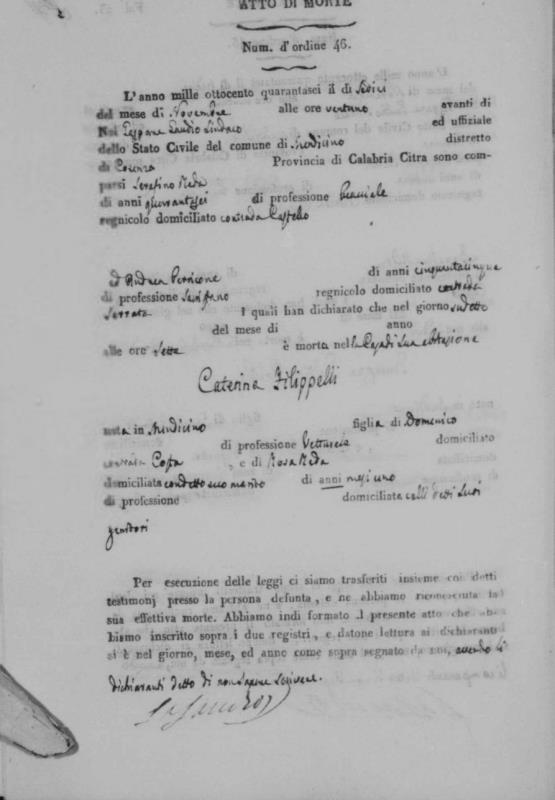 ATTO DI MORTE
Num. d'ordine 46.
L'anno mille ottocento quarantasei il dì Sedici
del mese di Novembre alle ore ventuno avanti di
Noi Sindaco ed uffiziale
dello Stato Civile del comune di Mendicino distretto
di Cosenza Provincia di Calabria Citra sono com-
parsi Serafino Reda
di anni quarantasei di professione Bracciale
regnicolo domiciliato contrada Castello
ed Andrea Perricone di anni cinquantacinque
di professione regnicolo domiciliato contrada
Serrata I quali han dichiarato che nel giorno sudetto
del mese di anno
alle ore sette è morta nella Casa di sua abitazione
Caterina Filippelli
nata in Mendicino figlia di Domenico
di professione Vetturale domiciliato
contrada Costa , e di Rosa Reda
domiciliata con detto suo marito di anni mesi uno
di professione domiciliata colli detti suoi
genitori
Per esecuzione delle leggi ci siamo trasferiti insieme coi detti
testimonj presso la persona defunta, e ne abbiamo riconosciuta la
sua effettiva morte. Abbiamo indi formato il presente atto che ab-
biamo inscritto sopra i due registri, e datone lettura ai dichiaranti
si è nel giorno, mese, ed anno come sopra segnato da noi, avendo li
dichiaranti detto di non sapere scrivere.